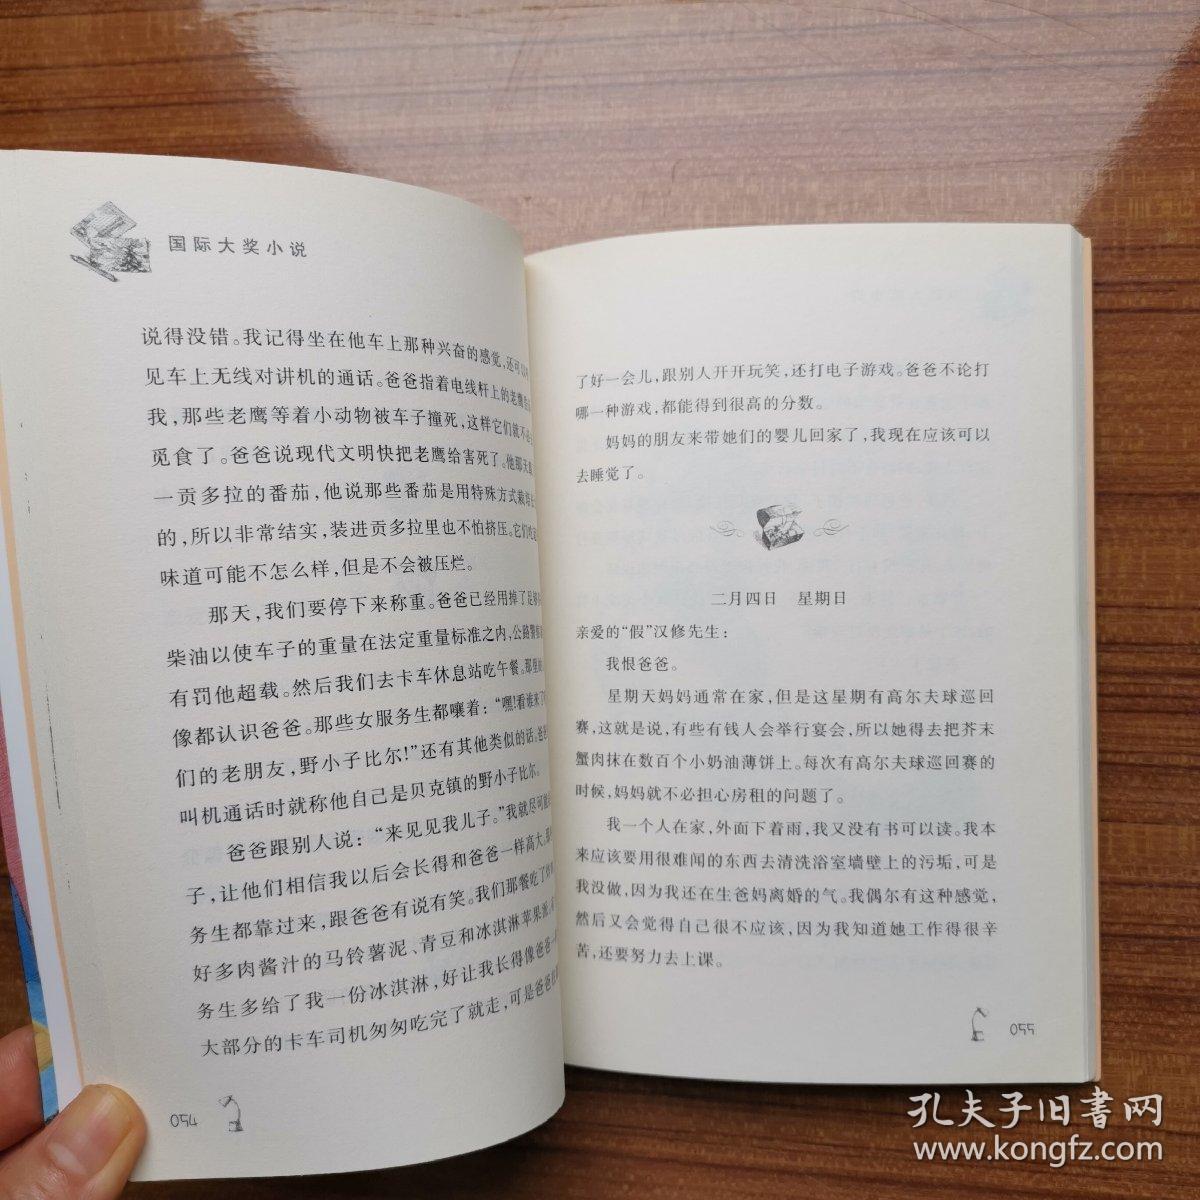 国际大奖小说
说得没错。我记得坐在他车上那种兴奋的感觉，还可以
见车上无线对讲机的通话。爸爸指着电线杆上的老鹰
我，那些老鹰等着小动物被车子撞死，这样它们就不
觅食了。爸爸说现代文明快把老鹰给害死了。他那天
一贡多拉的番茄，他说那些番茄是用特殊方式栽培
的，所以非常结实，装进贡多拉里也不怕挤压。它们吃
味道可能不怎么样，但是不会被压烂。
那天，我们要停下来称重。爸爸已经用掉了足够
柴油以使车子的重量在法定重量标准之内，公路警察
有罚他超载。然后我们去卡车休息站吃午餐。那里
像都认识爸爸。那些女服务生都嚷着：“嘿！看谁来了
们的老朋友，野小子比尔！”还有其他类似的话。爸
叫机通话时就称他自己是贝克镇的野小子比尔。
爸爸跟别人说：“来见见我儿子。”我就尽可能
子，让他们相信我以后会长得和爸爸一样高大。
务生都靠过来，跟爸爸有说有笑。我们那餐吃了
好多肉酱汁的马铃薯泥、青豆和冰淇淋苹果派。
务生多给了我一份冰淇淋，好让我长得像爸爸一
大部分的卡车司机匆匆吃完了就走，可是爸爸
054
了好一会儿，跟别人开开玩笑，还打电子游戏。爸爸不论打
哪一种游戏，都能得到很高的分数。
妈妈的朋友来带她们的婴儿回家了，我现在应该可以
去睡觉了。
二月四日 星期日
亲爱的“假”汉修先生：
我恨爸爸。
星期天妈妈通常在家，但是这星期有高尔夫球巡回
赛，这就是说，有些有钱人会举行宴会，所以她得去把芥末
蟹肉抹在数百个小奶油薄饼上。每次有高尔夫球巡回赛的
时候，妈妈就不必担心房租的问题了。
我一个人在家，外面下着雨，我又没有书可以读。我本
来应该要用很难闻的东西去清洗浴室墙壁上的污垢，可是
我没做，因为我还在生爸妈离婚的气。我偶尔有这种感觉，
然后又会觉得自己很不应该，因为我知道她工作得很辛
苦，还要努力去上课。
055
孔夫子旧书网
www.kongfz.com